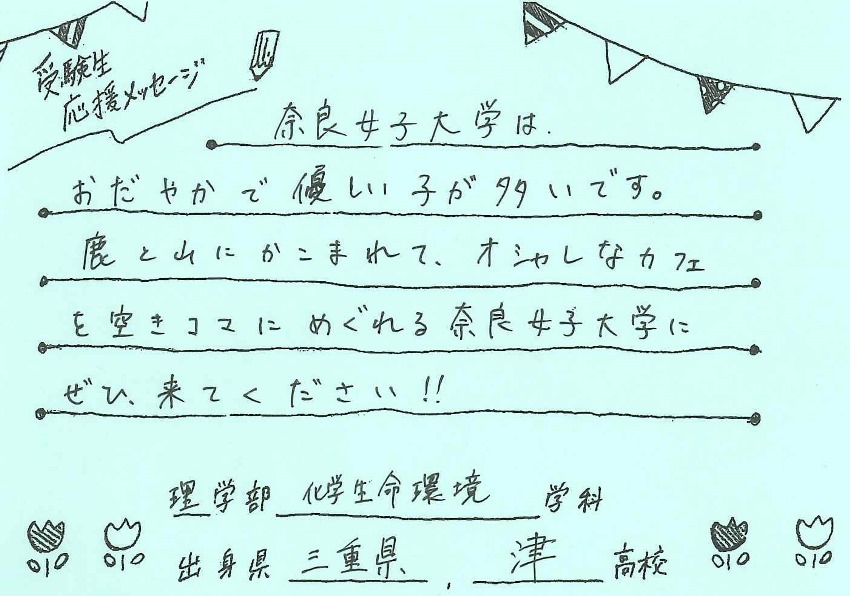 受験生
応援メッセージ
奈良女子大学は、
おだやかで優しい子が多いです。
鹿と山にかこまれて、オシャレなカフェ
を空きコマにめぐれる奈良女子大学に
ぜひ、来てください!!
理学部 化学生命環境 学科
出身県 三重県、津 高校